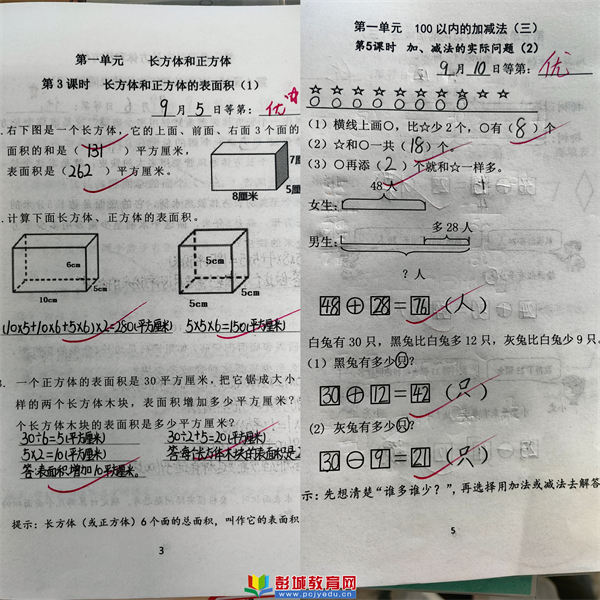 第一单元 长方体和正方体
第3课时 长方体和正方体的表面积(1)
9月5日等第: 优
右下图是一个长方体,它的上面、前面、右面3个面的
面积的和是( 131 )平方厘米,
表面积是( 262 )平方厘米。
7厘
8厘米
5厘
计算下面长方体、正方体的表面积。
6cm
10cm
5cm
5cm
5cm
5cm
(10×5+10×6+5×6)×2=280(平方厘米)
5×5×6=150(平方厘米)
一个正方体的表面积是30平方厘米,把它锯成大小
样的两个长方体木块,表面积增加多少平方厘米?
个长方体木块的表面积是多少平方厘米?
30÷6=5(平方厘米)
30÷2+5=20(平方厘米)
5×2=10(平方厘米)
答:每个长方体木块的表面积是2
答:表面积增加10平方厘米。
提示:长方体(或正方体)6个面的总面积,叫作它的表面积
3
第一单元 100以内的加减法(三)
第5课时 加、减法的实际问题(2)
9月10日等第: 优
☆☆☆☆☆☆☆☆☆☆
○○○○○○○○
(1)横线上画○,比☆少2个,○有( 8 )个
(2)☆和○一共( 18 )个。
(3)○再添( 2 )个就和☆一样多。
48人
女生:
多28人
男生:
?人
48+28=76(人)
白兔有30只,黑兔比白兔多12只,灰兔比白兔少9只。
(1)黑兔有多少只?
30+12=42(只)
(2)灰兔有多少只?
30-9=21(只)
示:先想清楚“谁多谁少?”,再选择用加法或减法去解答
5
彭城教育网
www.pcjyedu.cn